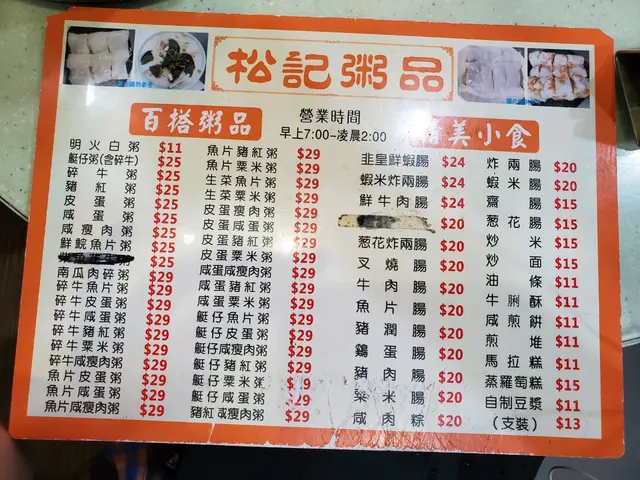 松記粥品
百搭粥品
營業時間
早上7:00-凌晨2:00
美小食
明火白粥 $11
艇仔粥(含碎牛) $25
碎牛粥 $25
豬紅粥 $25
皮蛋粥 $25
咸蛋粥 $25
咸瘦肉粥 $25
鮮鯇魚片粥 $25
$25
南瓜肉碎粥 $29
碎牛魚片粥 $29
碎牛皮蛋粥 $29
碎牛咸蛋粥 $29
碎牛豬紅粥 $29
碎牛粟米粥 $29
碎牛咸瘦肉粥 $29
魚片皮蛋粥 $29
魚片咸蛋粥 $29
魚片咸瘦肉粥 $29
魚片豬紅粥 $29
魚片粟米粥 $29
生菜魚片粥 $29
生菜粟米粥 $29
皮蛋瘦肉粥 $29
皮蛋咸蛋粥 $29
皮蛋豬紅粥 $29
皮蛋粟米粥 $29
咸蛋咸瘦肉粥 $29
咸蛋豬紅粥 $29
咸蛋粟米粥 $29
艇仔魚片粥 $29
艇仔皮蛋粥 $29
艇仔咸瘦肉粥 $29
艇仔豬紅粥 $29
艇仔粟米粥 $29
艇仔咸蛋粥 $29
豬紅咸瘦肉粥 $29
韭皇鮮蝦腸 $24
蝦米炸兩腸 $24
鮮牛肉腸 $24
$20
葱花炸兩腸 $20
叉燒腸 $20
牛肉腸 $20
魚片腸 $20
豬潤腸 $20
鷄蛋腸 $20
豬肉腸 $20
粟米腸 $20
咸肉粽 $20
炸兩腸 $20
蝦米腸 $20
齋腸 $15
葱花腸 $15
炒米 $15
炒面 $15
油條 $11
牛脷酥 $11
咸煎餅 $11
煎堆 $11
馬拉糕 $11
蒸蘿蔔糕 $15
自制豆漿 $11
(支裝) $13